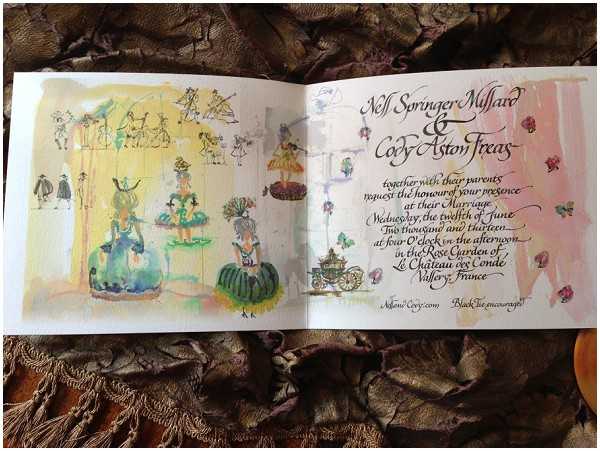 Nell Springer Millard
&
Cody Aston Freas
together with their parents
request the honour of your presence
at their Marriage
Wednesday, the twelfth of June
Two thousand and thirteen
at four O'clock in the afternoon
in the Rose Garden of
Le Château des Conde
Vallery, France
NellandCody.com Black Tie encouraged